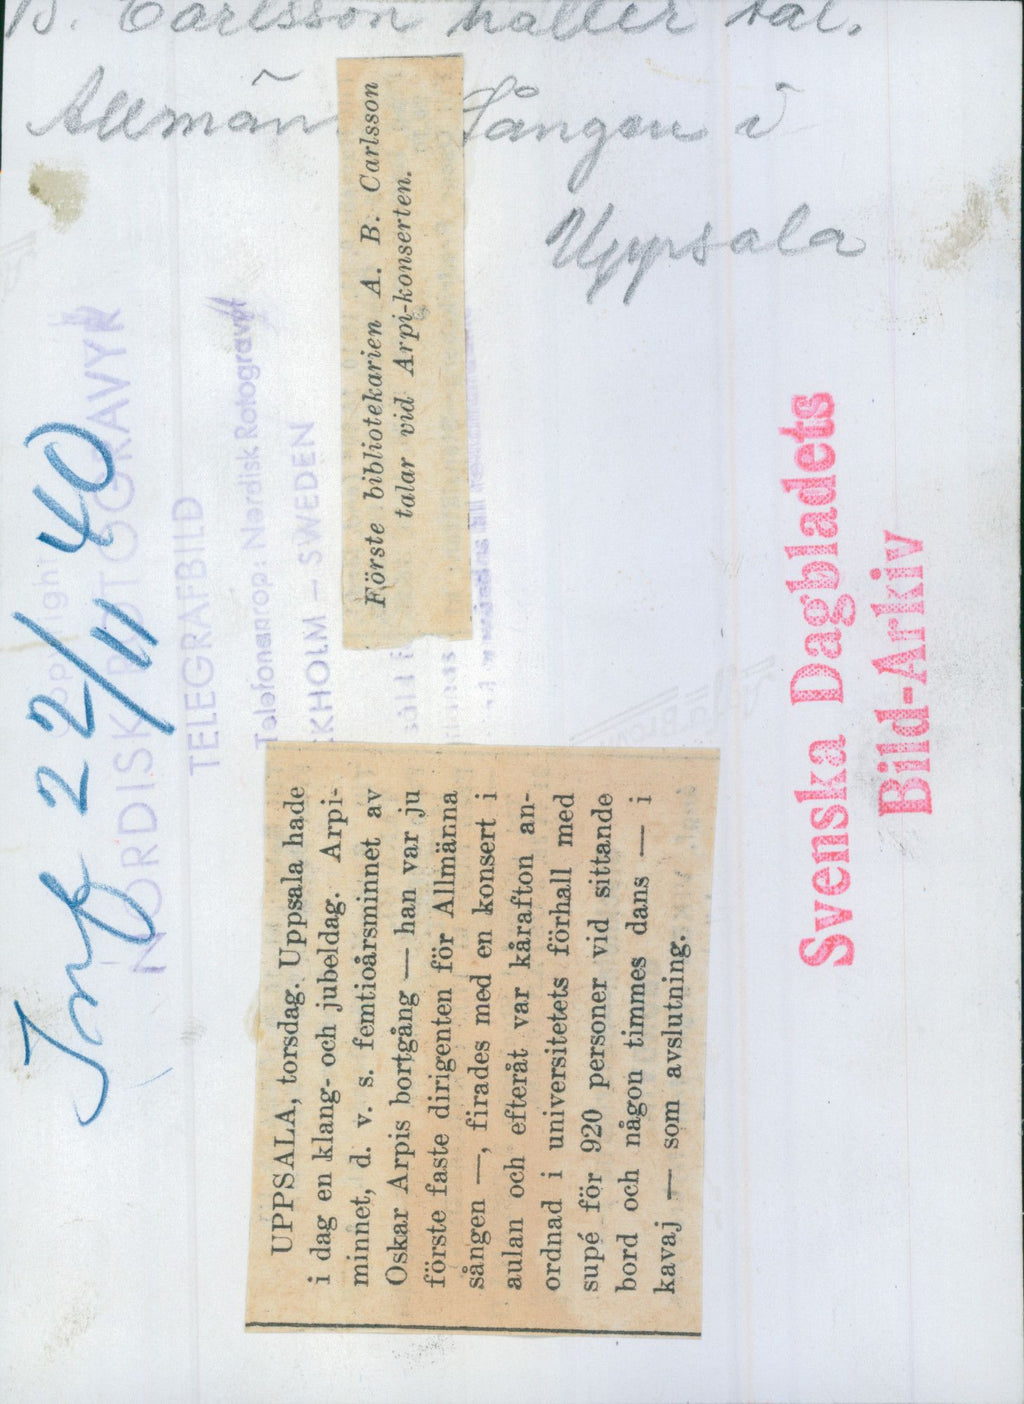 B. Carlsson håller tal.
Allmän Sången i
Uppsala
Inf 22/11 40
Copyright
NORDISK ROTOGRAVYR
TELEGRAFBILD
Telefonanrop: Nordisk Rotogravyr
KHOLM – SWEDEN
Förste bibliotekarien A. B. Carlsson
talar vid Arpi-konserten.
UPPSALA, torsdag. Uppsala hade
i dag en klang- och jubeldag. Arpi-
minnet, d. v. s. femtioårsminnet av
Oskar Arpis bortgång — han var ju
förste faste dirigenten för Allmänna
sången —, firades med en konsert i
aulan och efteråt var kårafton an-
ordnad i universitetets förhall med
supé för 920 personer vid sittande
bord och någon timmes dans — i
kavaj — som avslutning.
Svenska Dagbladets
Bild-Arkiv